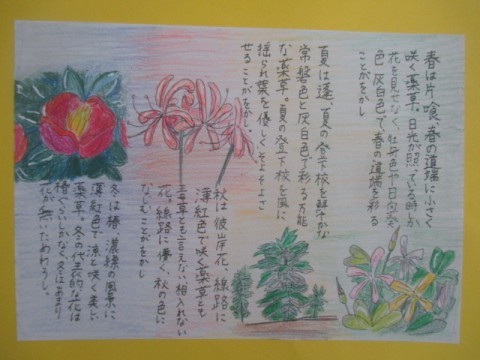 春は片喰、春の道端に小さく
咲く薬草。日光が照っている時しか
花を見せなく、牡丹色や日向葵
色 灰白色で、春の道端を彩る
ことがをかし
夏は蓬、夏の登下校を鮮やかな
常磐色と灰白色で彩る万能
な薬草。夏の登下校を風に
揺られ葉を優しくそよそよさ
せることがをかし。
秋は彼岸花、線路に
薄紅色で咲く薬草とも
毒草とも言えない相入れない
花。線路に儚く、秋の色に
なじむことがをかし
冬は椿、濃緑の風景に
薄紅色で凛と咲く美しい
薬草。冬の代表的な花は
椿ぐらいしかなく、冬はあまり
花が無いためわろし。